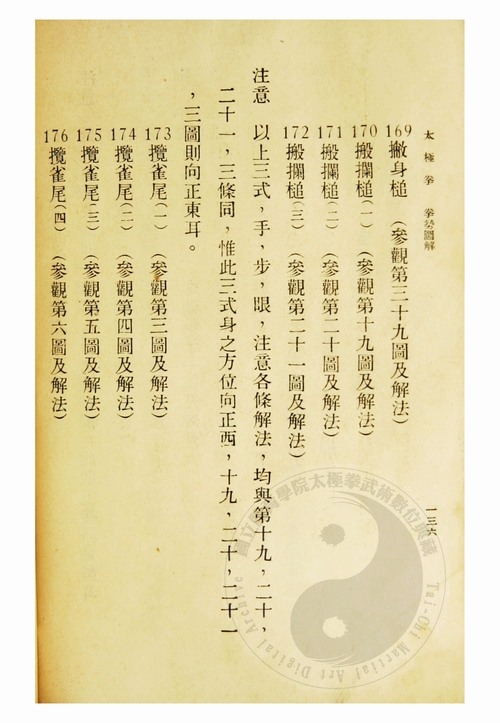 太極拳　拳勢圖解
一三六
169 撇身槌　（參觀第三十九圖及解法）
170 搬攔槌（一）　（參觀第十九圖及解法）
171 搬攔槌（二）　（參觀第二十圖及解法）
172 搬攔槌（三）　（參觀第二十一圖及解法）
注意　以上三式，手，步，眼，注意各條解法，均與第十九，二十，
二十一，三條同，惟此三式身之方位向正西，十九，二十，二十一
，三圖則向正東耳。
173 攬雀尾（一）　（參觀第三圖及解法）
174 攬雀尾（二）　（參觀第四圖及解法）
175 攬雀尾（三）　（參觀第五圖及解法）
176 攬雀尾（四）　（參觀第六圖及解法）
學院太極拳武術數位典藏
Tai-Chi Martial Art Digital Archive